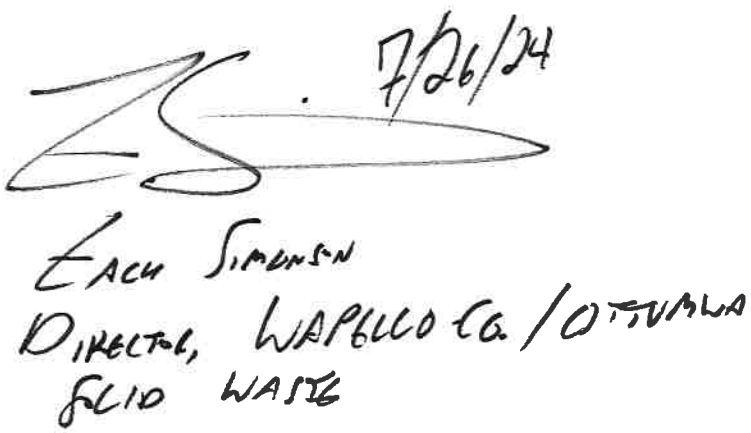 7/26/24
Zach Simonson
Director, Wapello Co. / Ottumwa
Solid Waste